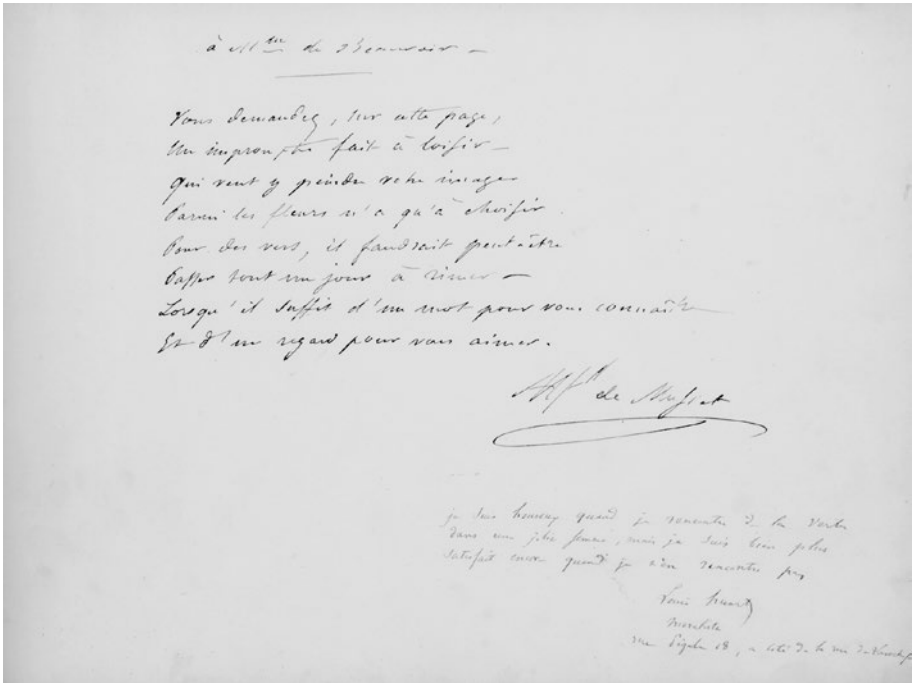 à Mme de Beauvoir —
Vous demandez, sur cette page,
Un impromptu fait à loisir —
Qui veut y peindre votre image
Parmi les fleurs n'a qu'à choisir.
Pour des vers, il faudrait peut être
Passer tout un jour à rimer —
Lorsqu'il suffit d'un mot pour vous connaître
Et d'un regard pour vous aimer.
Alfd de Musset
je suis heureux quand je rencontre de la vertu
dans une jolie femme, mais je suis bien plus
satisfait encore quand je n'en rencontre pas
Louis Huart
moraliste
rue 18, à côté de la rue